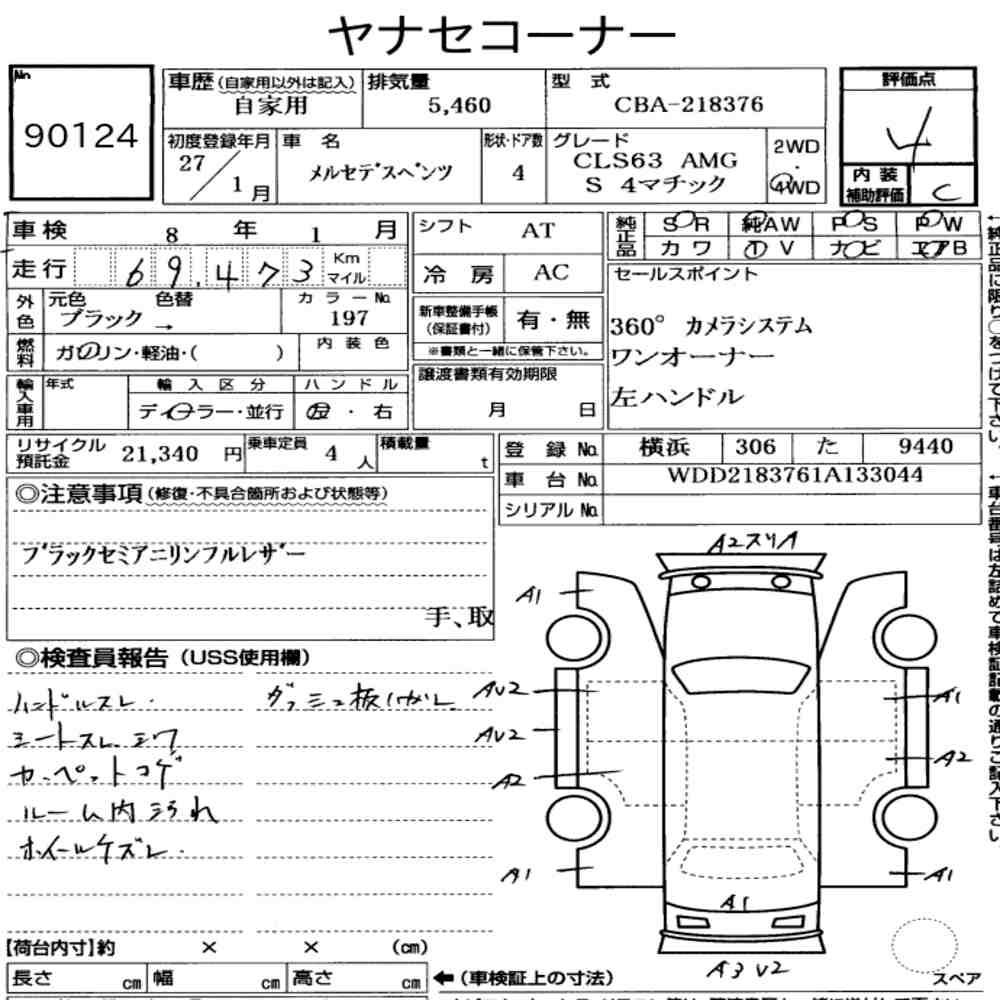 ヤナセコーナー
No
90124
車歴(自家用以外は記入) 排気量 型 式 評価点
自家用 5,460 CBA-218376 4
初度登録年月 車 名 形状・ドア数 グレード 2WD
27/1月 メルセデスベンツ 4 CLS63 AMG ・
S 4マチック 4WD 内 装
補助評価 C
車検 8 年 1 月 シフト AT 純正品 SR 純AW PS PW
走行 69,473 Km マイル カワ TV ナビ エアB
冷 房 AC セールスポイント
外色 元色 色替 カラーNo.
ブラック → 197
新車整備手帳 有・無
(保証書付)
※書類と一緒に保管下さい。
360° カメラシステム
ワンオーナー
左ハンドル
燃料 ガソリン・軽油・( ) 内装色
譲渡書類有効期限
月 日
輸入車用 年式 輸入区分 ハンドル
ディーラー・並行 左・右
リサイクル 21,340 円 乗車定員 4 人 積載量 t
預託金
登 録 No. 横浜 306 た 9440
車 台 No. WDD2183761A133044
シリアルNo.
◎注意事項(修復・不具合箇所および状態等)
ブラックセミアニリンフルレザー
手、取
◎検査員報告(USS使用欄)
ハンドルスレ.
シートスレ.シワ
カーペットコゲ
ルーム内汚れ
ホイールキズレ.
A2スリA
A1
AV2 A1
AV2
A2 A2
A1 A1
A1
A3 V2
スペア
【荷台内寸】約 × × (cm)
長さ cm 幅 cm 高さ cm ←(車検証上の寸法)
←純正品に限り○をつけて下さい。
←車台番号は左詰めで車検証記載の通りご記入下さい。